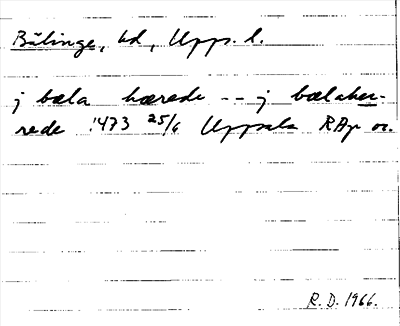 Bälinge, hd, Upps. l.
j bæla hærede -- j bælahæ-
rede 1473 25/6 Uppsala RAp or.
R. D. 1966.